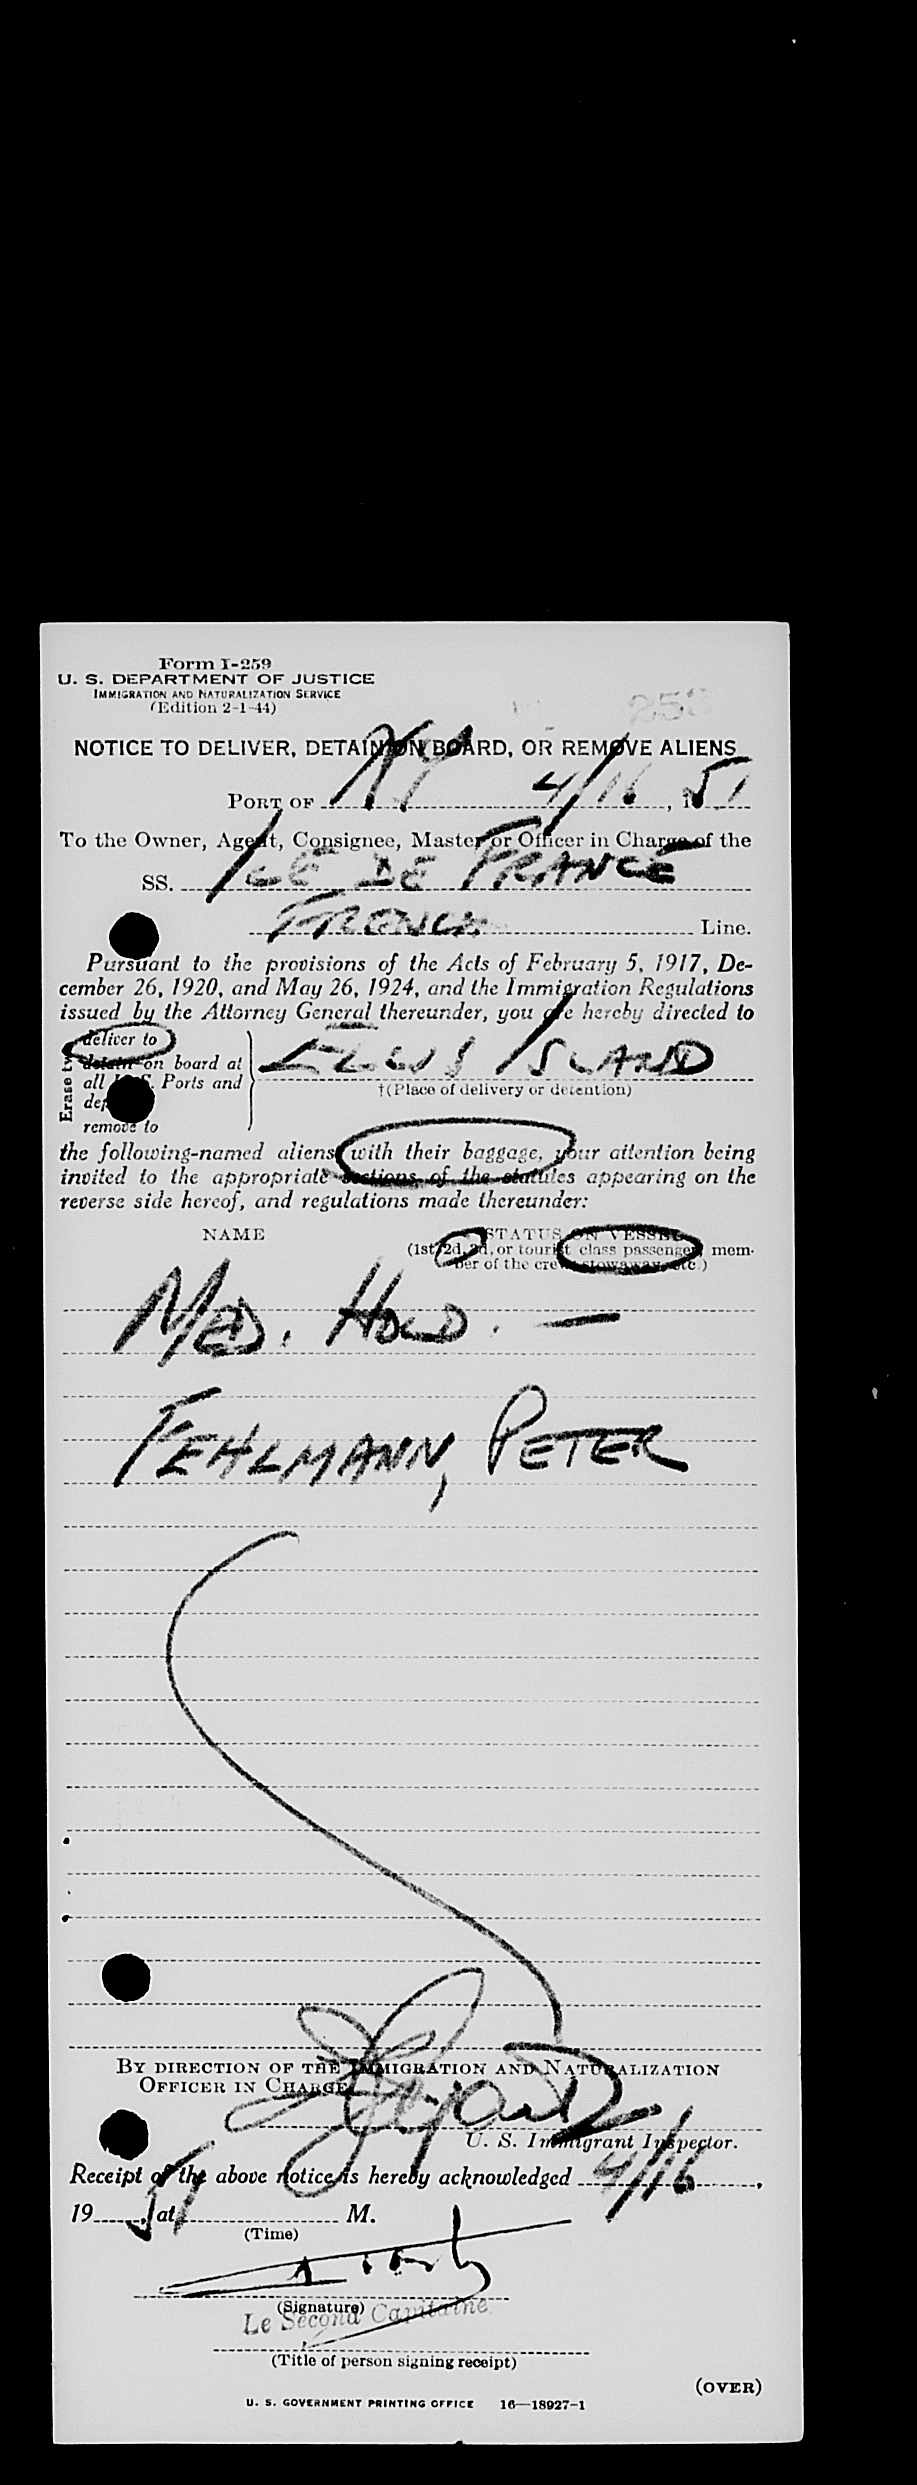 Form I-259
U. S. DEPARTMENT OF JUSTICE
IMMIGRATION AND NATURALIZATION SERVICE
(Edition 2-1-44)
NOTICE TO DELIVER, DETAIN ON BOARD, OR REMOVE ALIENS
PORT OF NY 4/16, 1951
To the Owner, Agent, Consignee, Master or Officer in Charge of the
SS. ILE DE FRANCE
FRENCH Line.
Pursuant to the provisions of the Acts of February 5, 1917, De-
cember 26, 1920, and May 26, 1924, and the Immigration Regulations
issued by the Attorney General thereunder, you are hereby directed to
Erase two
deliver to
detain on board at
all U.S. Ports and
remove to
ELLIS ISLAND
†(Place of delivery or detention)
the following-named aliens with their baggage, your attention being
invited to the appropriate sections of the statutes appearing on the
reverse side hereof, and regulations made thereunder:
NAME STATUS ON VESSEL
(1st, 2d, 3d, or tourist class passenger, mem-
ber of the crew, stowaway, etc.)
MED. HOLD. —
FEHLMANN, PETER
BY DIRECTION OF THE IMMIGRATION AND NATURALIZATION
OFFICER IN CHARGE
U. S. Immigrant Inspector.
Receipt of the above notice is hereby acknowledged 4/16,
1951, at M.
(Time)
(Signature)
Le Second Capitaine
(Title of person signing receipt)
(OVER)
U. S. GOVERNMENT PRINTING OFFICE 16—18927-1